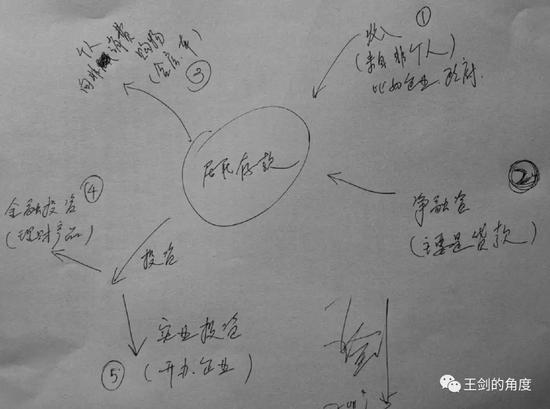 ①
收入
(来自非个人
比如企业 政府.
个人
向非 消费 购物
(含房、车)
③
居民存款
②
净融资
(主要是贷款)
④
金融投资
(理财产品)
投资
实业投资
(开办企业)
⑤
王剑的角度